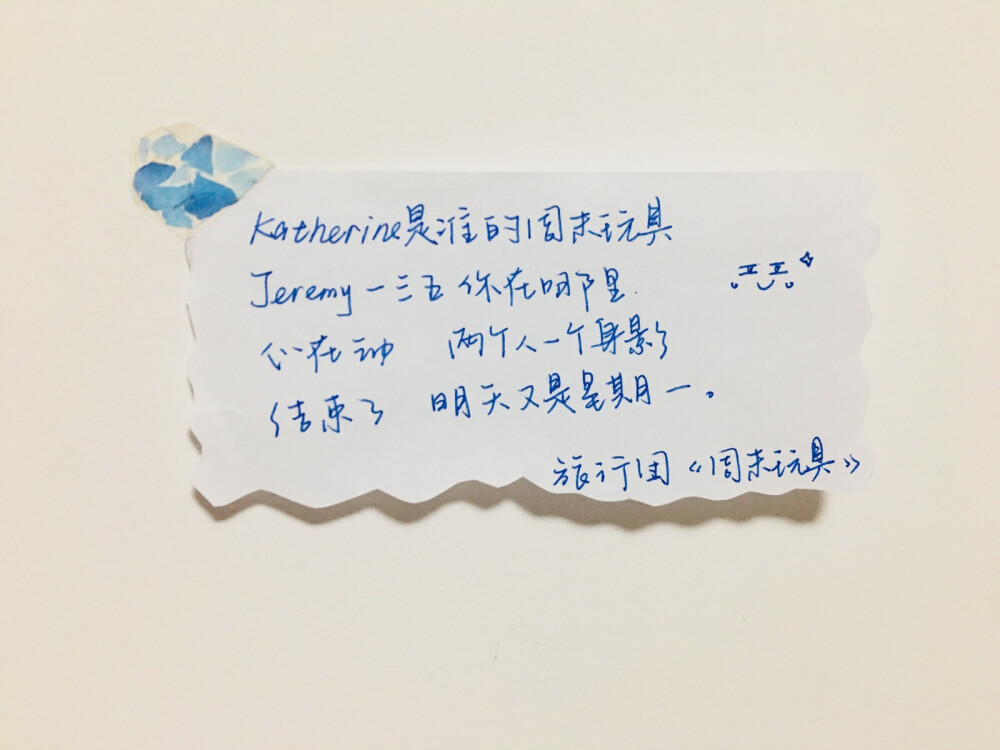 Katherine是谁的周末玩具
Jeremy一三五你在哪里
心在动 两个人一个身影
结束了 明天又是星期一。
旅行团《周末玩具》